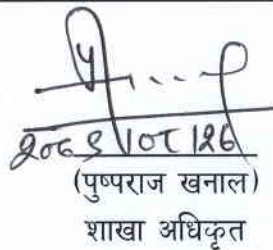 २०७९।०८।२७
(पुष्पराज खनाल)
शाखा अधिकृत